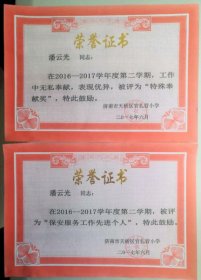 荣誉证书
潘云光 同志:
在2016—2017学年度第二学期,工作
中无私奉献,表现优异,被评为“特殊奉
献奖”,特此鼓励。
济南市天桥区官扎营小学
二〇一七年六月
荣誉证书
潘云光 同志:
在2016—2017学年度第二学期,被评
为“保安服务工作先进个人”,特此鼓励。
济南市天桥区官扎营小学
二〇一七年六月